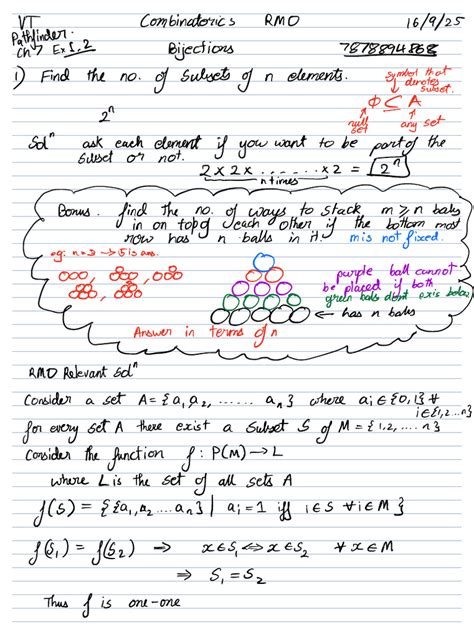 VT Combinatorics RMO 16/9/25
Pathfinder.
Ch 7 Ex 1,2 Bijections 7878894868
1) Find the no. of subsets of n elements.
symbol that denotes subset.
ϕ ⊆ A
null set any set
2^n
Sol^n ask each element if you want to be part of the
subset or not.
2 x 2 x ....... x 2 = 2^n
n times
Bonus. find the no. of ways to stack m ≥ n balls
in on top of each other if the bottom most
row has n balls in it. m is not fixed.
eg: n=3 → 5 is ans.
purple ball cannot
be placed if both
green balls dont exis below
← has n balls
Answer in terms of n
RMO Relevant Sol^n
Consider a set A = {a₁, a₂, ...... aₙ} where aᵢ ∈ {0,1} ∀
i ∈ {1,2...n}
for every set A there exist a subset S of M = {1,2,.... n}
Consider the function f: P(M) → L
where L is the set of all sets A
f(S) = {{a₁,a₂ ....aₙ} | aᵢ = 1 iff i∈S ∀ i∈M}
f(S₁) = f(S₂) ⇒ x∈S₁ ⇔ x∈S₂ ∀ x∈M
⇒ S₁ = S₂
Thus f is one-one